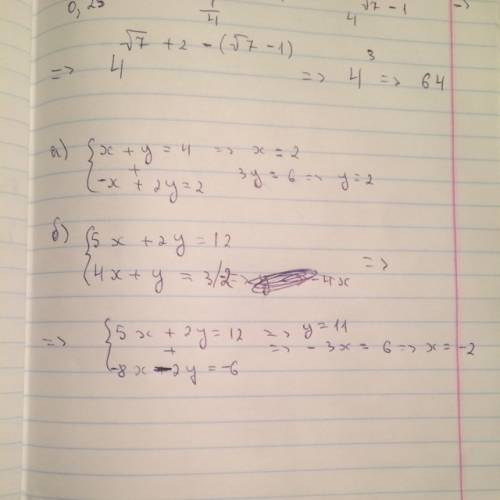 0,25 1/4 4^(√7 - 1) =>
=> 4^(√7 + 2 - (√7 - 1)) => 4^3 => 64
а) { x + y = 4 => x = 2
+
-x + 2y = 2 3y = 6 => y = 2
б) { 5x + 2y = 12
4x + y = 3/2 -4x =>
=> { 5x + 2y = 12 => y = 11
+ => -3x = 6 => x = -2
-8x - 2y = -6